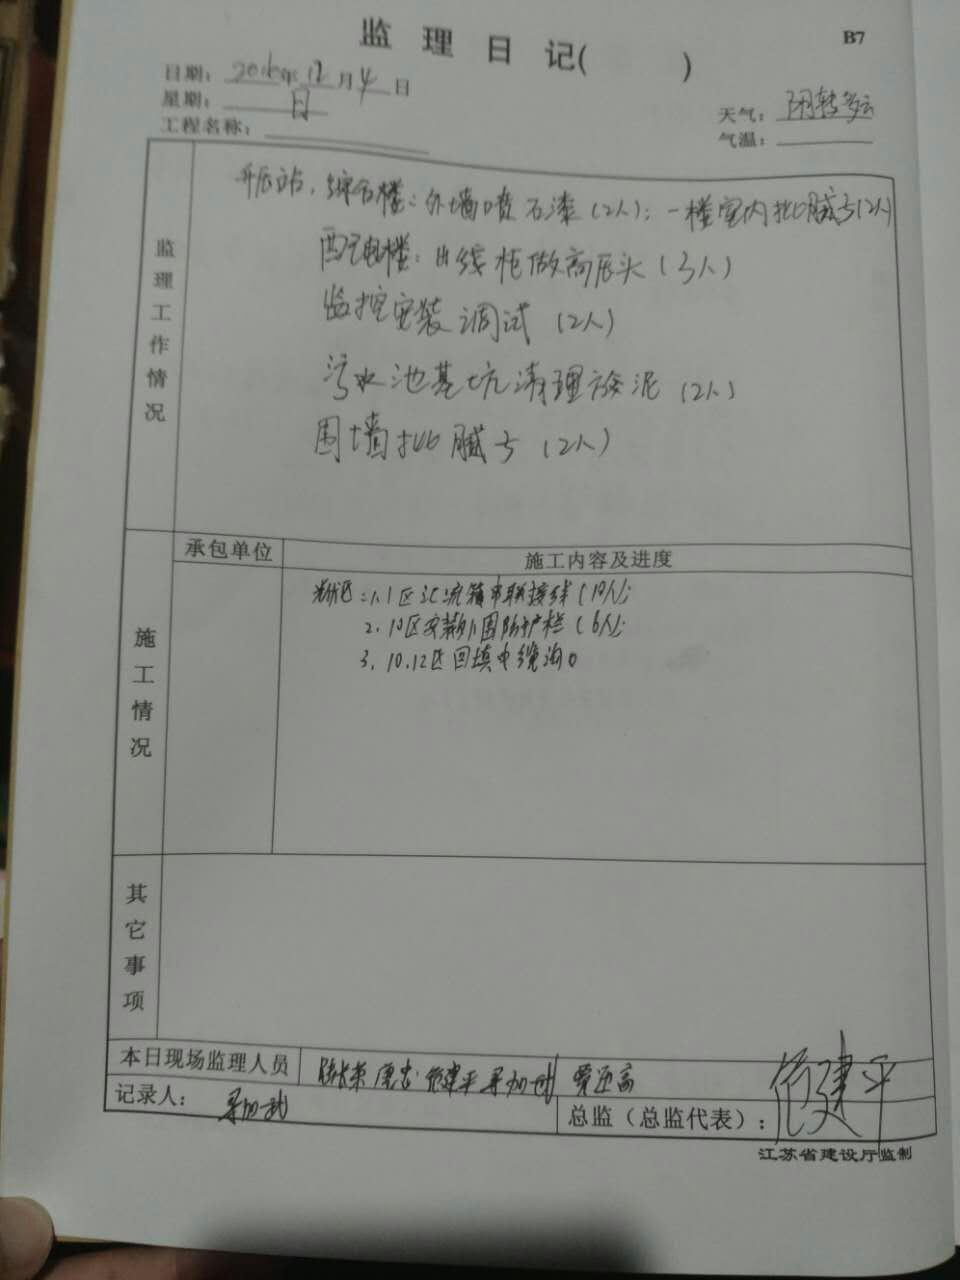 监理日记( )
B7
日期：2016年12月4日
星期：日
天气：阴转多云
工程名称：
气温：
监理工作情况
升压站：综合楼：外墙喷石漆（2人）；一楼室内批腻子（2人）
配电楼：出线柜做高压头（3人）
监控安装调试（2人）
污水池基坑清理淤泥（2人）
围墙批腻子（2人）
施工情况
承包单位
施工内容及进度
光伏区：1.1区汇流箱串联接线（10人）；
2.10区安装外围防护栏（6人）；
3.10.12区回填电缆沟。
其它事项
本日现场监理人员
建平
记录人：
总监（总监代表）：建平
江苏省建设厅监制